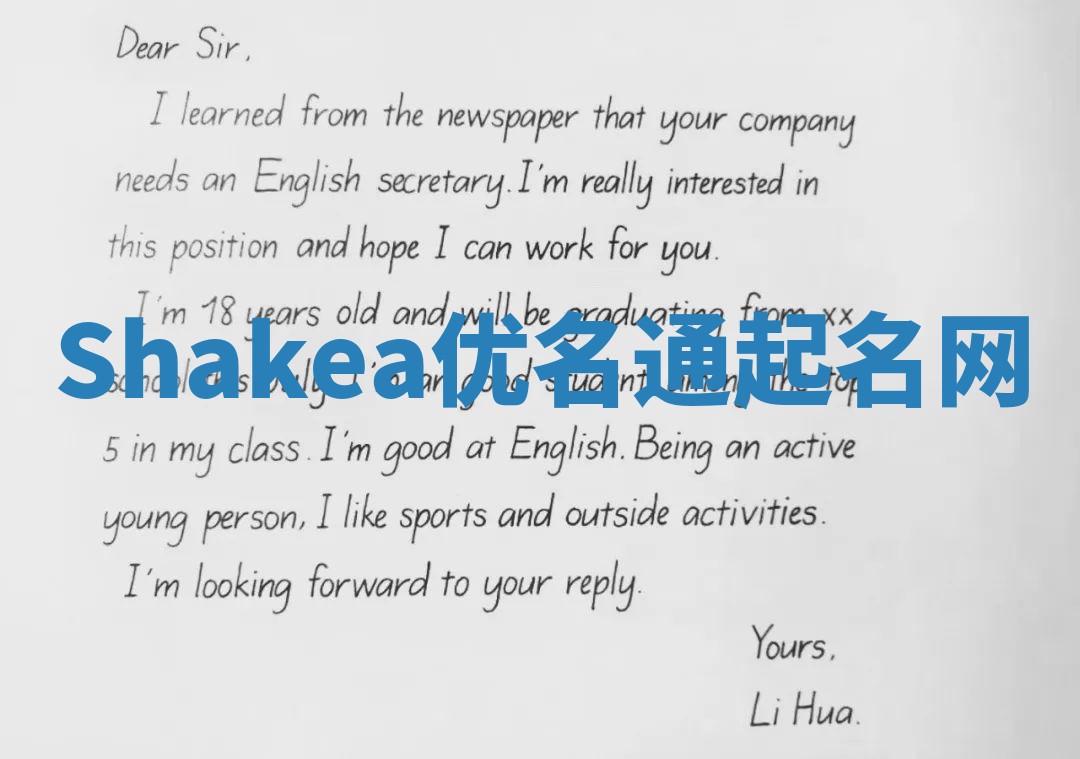 Dear Sir,
I learned from the newspaper that your company
needs an English secretary. I'm really interested in
this position and hope I can work for you.
I'm 18 years old and will be graduating from xx
Shakea优名通起名网
school this July. I'm an good student among the top
5 in my class. I'm good at English. Being an active
young person, I like sports and outside activities.
I'm looking forward to your reply.
Yours,
Li Hua.